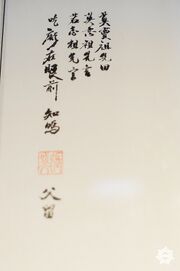 莫賣祖先田
莫忘祖先言
若忘祖先言
吃虧在眼前 知鳴
父留